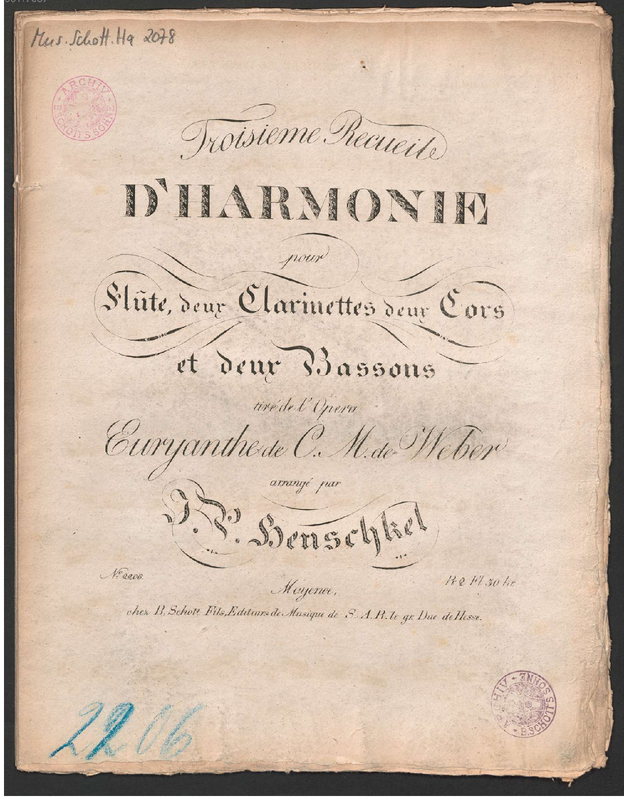 Mus. Schott. Ha 2078
ARCHIV B. SCHOTT'S SÖHNE
Troisieme Recueil
D'HARMONIE
pour
Flûte, deux Clarinettes deux Cors
et deux Bassons
tiré de l'Opera
Euryanthe de C. M. de Weber
arrangé par
Henschkel
No. 2206.
Pr 2 Fl. 30 kr.
Mayence,
chez B. Schott Fils, Editeurs de Musique de S. A. R. le gr. Duc de Hesse.
2206
ARCHIV B. SCHOTT'S SÖHNE